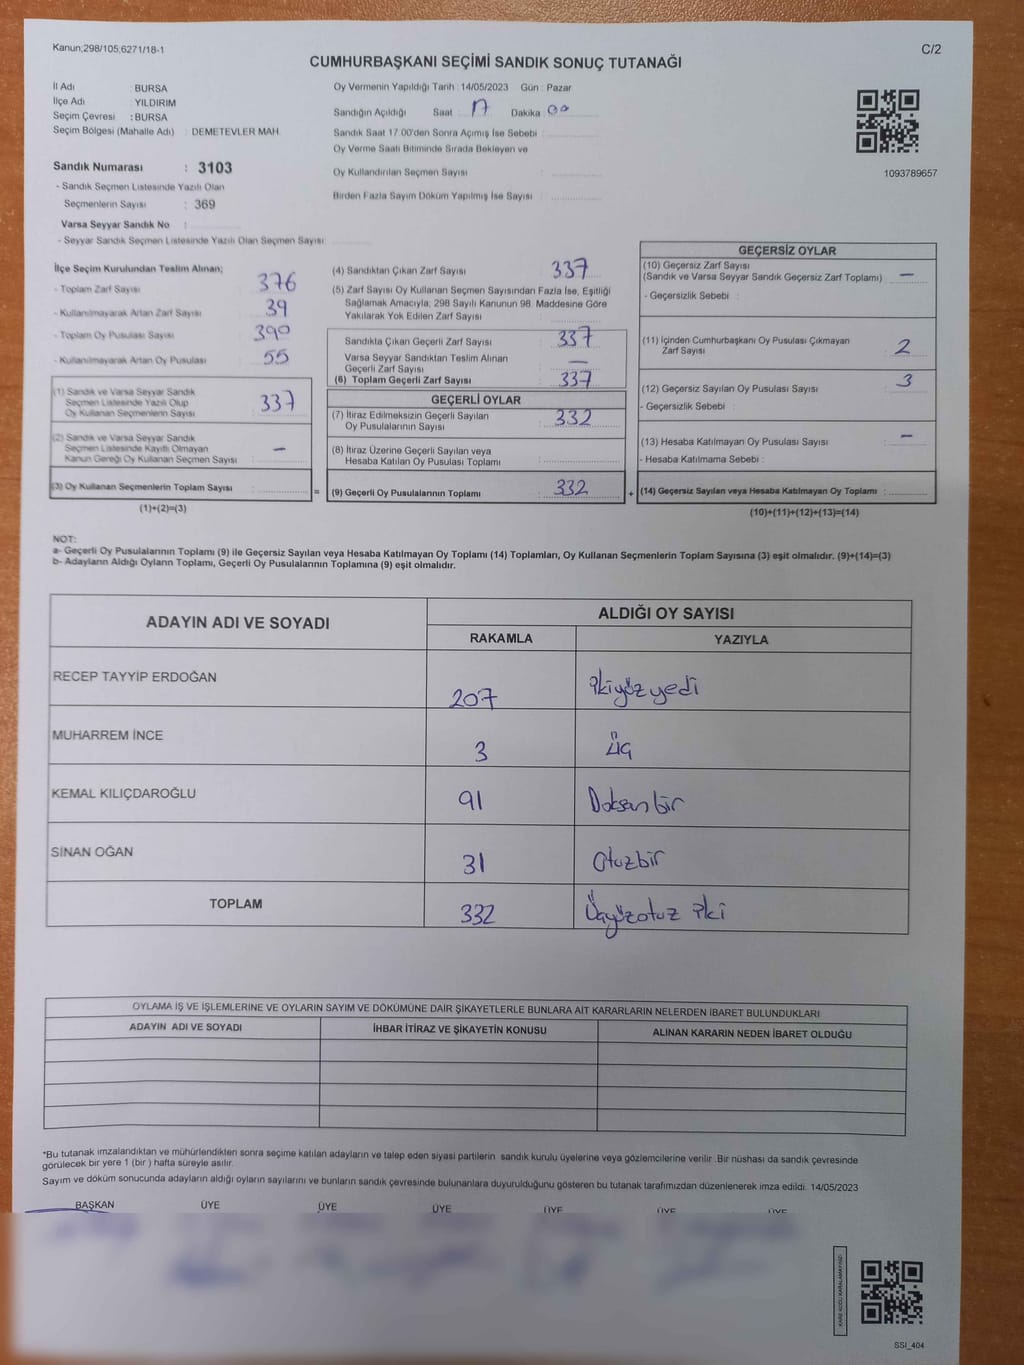 Kanun;298/105,6271/18-1
C/2
CUMHURBAŞKANI SEÇİMİ SANDIK SONUÇ TUTANAĞI
İl Adı BURSA
İlçe Adı : YILDIRIM
Seçim Çevresi : BURSA
Seçim Bölgesi (Mahalle Adı) : DEMETEVLER MAH.
Oy Vermenin Yapıldığı Tarih : 14/05/2023 Gün : Pazar
Sandığın Açıldığı Saat 17 Dakika 00
Sandık Saat 17.00'den Sonra Açımış İse Sebebi :
Oy Verme Saati Bitiminde Sırada Bekleyen ve
Oy Kullandırılan Seçmen Sayısı :
Birden Fazla Sayım Döküm Yapılmış İse Sayısı :
1093789657
Sandık Numarası : 3103
- Sandık Seçmen Listesinde Yazılı Olan
Seçmenlerin Sayısı : 369
Varsa Seyyar Sandık No :
- Seyyar Sandık Seçmen Listesinde Yazılı Olan Seçmen Sayısı:
İlçe Seçim Kurulundan Teslim Alınan;
- Toplam Zarf Sayısı : 376
- Kullanılmayarak Artan Zarf Sayısı : 39
- Toplam Oy Pusulası Sayısı : 390
- Kullanılmayarak Artan Oy Pusulası : 55
(1) Sandık ve Varsa Seyyar Sandık
Seçmen Listesinde Yazılı Olup
Oy Kullanan Seçmenlerin Sayısı : 337
(2) Sandık ve Varsa Seyyar Sandık
Seçmen Listesinde Kayıtlı Olmayan
Kanun Gereği Oy Kullanan Seçmen Sayısı : –
(3) Oy Kullanan Seçmenlerin Toplam Sayısı : =
(1)+(2)=(3)
(4) Sandıktan Çıkan Zarf Sayısı : 337
(5) Zarf Sayısı Oy Kullanan Seçmen Sayısından Fazla İse, Eşitliği
Sağlamak Amacıyla; 298 Sayılı Kanunun 98. Maddesine Göre
Yakılarak Yok Edilen Zarf Sayısı :
Sandıkta Çıkan Geçerli Zarf Sayısı : 337
Varsa Seyyar Sandıktan Teslim Alınan
Geçerli Zarf Sayısı : —
(6) Toplam Geçerli Zarf Sayısı : 337
GEÇERLİ OYLAR
(7) İtiraz Edilmeksizin Geçerli Sayılan
Oy Pusulalarının Sayısı : 332
(8) İtiraz Üzerine Geçerli Sayılan veya
Hesaba Katılan Oy Pusulası Toplamı :
(9) Geçerli Oy Pusulalarının Toplamı : 332 +
GEÇERSİZ OYLAR
(10) Geçersiz Zarf Sayısı
(Sandık ve Varsa Seyyar Sandık Geçersiz Zarf Toplamı) : —
- Geçersizlik Sebebi :
(11) İçinden Cumhurbaşkanı Oy Pusulası Çıkmayan
Zarf Sayısı : 2
(12) Geçersiz Sayılan Oy Pusulası Sayısı : 3
- Geçersizlik Sebebi :
(13) Hesaba Katılmayan Oy Pusulası Sayısı : –
- Hesaba Katılmama Sebebi :
(14) Geçersiz Sayılan veya Hesaba Katılmayan Oy Toplamı :
(10)+(11)+(12)+(13)=(14)
NOT:
a- Geçerli Oy Pusulalarının Toplamı (9) ile Geçersiz Sayılan veya Hesaba Katılmayan Oy Toplamı (14) Toplamları, Oy Kullanan Seçmenlerin Toplam Sayısına (3) eşit olmalıdır. (9)+(14)=(3)
b- Adayların Aldığı Oyların Toplamı, Geçerli Oy Pusulalarının Toplamına (9) eşit olmalıdır.
ADAYIN ADI VE SOYADI ALDIĞI OY SAYISI
RAKAMLA YAZIYLA
RECEP TAYYİP ERDOĞAN 207 İkiyüzyedi
MUHARREM İNCE 3 Üç
KEMAL KILIÇDAROĞLU 91 Doksanbir
SİNAN OĞAN 31 Otuzbir
TOPLAM 332 Üçyüzotuz iki
OYLAMA İŞ VE İŞLEMLERİNE VE OYLARIN SAYIM VE DÖKÜMÜNE DAİR ŞİKAYETLERLE BUNLARA AİT KARARLARIN NELERDEN İBARET BULUNDUKLARI
ADAYIN ADI VE SOYADI İHBAR İTİRAZ VE ŞİKAYETİN KONUSU ALINAN KARARIN NEDEN İBARET OLDUĞU
*Bu tutanak imzalandıktan ve mühürlendikten sonra seçime katılan adayların ve talep eden siyasi partilerin sandık kurulu üyelerine veya gözlemcilerine verilir. Bir nüshası da sandık çevresinde
görülecek bir yere 1 (bir ) hafta süreyle asılır.
Sayım ve döküm sonucunda adayların aldığı oyların sayılarını ve bunların sandık çevresinde bulunanlara duyurulduğunu gösteren bu tutanak tarafımızdan düzenlenerek imza edildi. 14/05/2023
BAŞKAN ÜYE ÜYE ÜYE ÜYE ÜYE ÜYE
SSİ_404